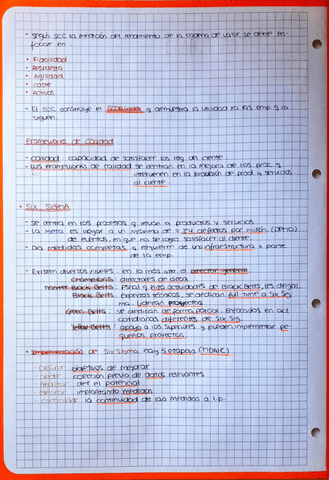 - Según SCC la medición del rendimiento de la cadena de valor se debe en-
focar en:
• Fiabilidad
• Respuesta
• Agilidad
• Coste
• Activos
- El SCC construye el SCORcard y demuestra la utilidad ra las emp q la
siguen.
Frameworks de Calidad
- Calidad: capacidad de satisfacer los req del cliente
- Los frameworks de calidad se centran en la mejora de los proc q
intervienen en la provisión de prod y servicios
al cliente.
• SIX SIGMA
- Se centra en los procesos q llevan a productos y servicios
- La meta es llegar a un máximo de 3,4 defectos por millón (DPMO)
de eventos, en que no se logra satisfacer al cliente.
- Da medidas completas y requiere de una infraestructura x parte
de la emp.
- Existen diversos niveles: en lo más alto el director general
Champions: directores de área
Master Black Belts: actividades de Black Belts, les dirigen.
Black Belts: expertos técnicos, se dedican full time a Six Sig
ma. Lideran proyectos
Green Belts: se dedican de forma parcial. Enfocados en act
cotidianas diferentes de Six Sig.
Yellow Belts: apoyo a los superiores y pueden implementar pe
queños proyectos.
• Implementación de Six Sigma hay 5 etapas (DMAIC)
Definir: objetivos de mejorar
Medir: conexión previa de datos relevantes
Analizar: det el potencial
Mejorar: implantando medidas
Controlar: la continuidad de las medidas a l.p.